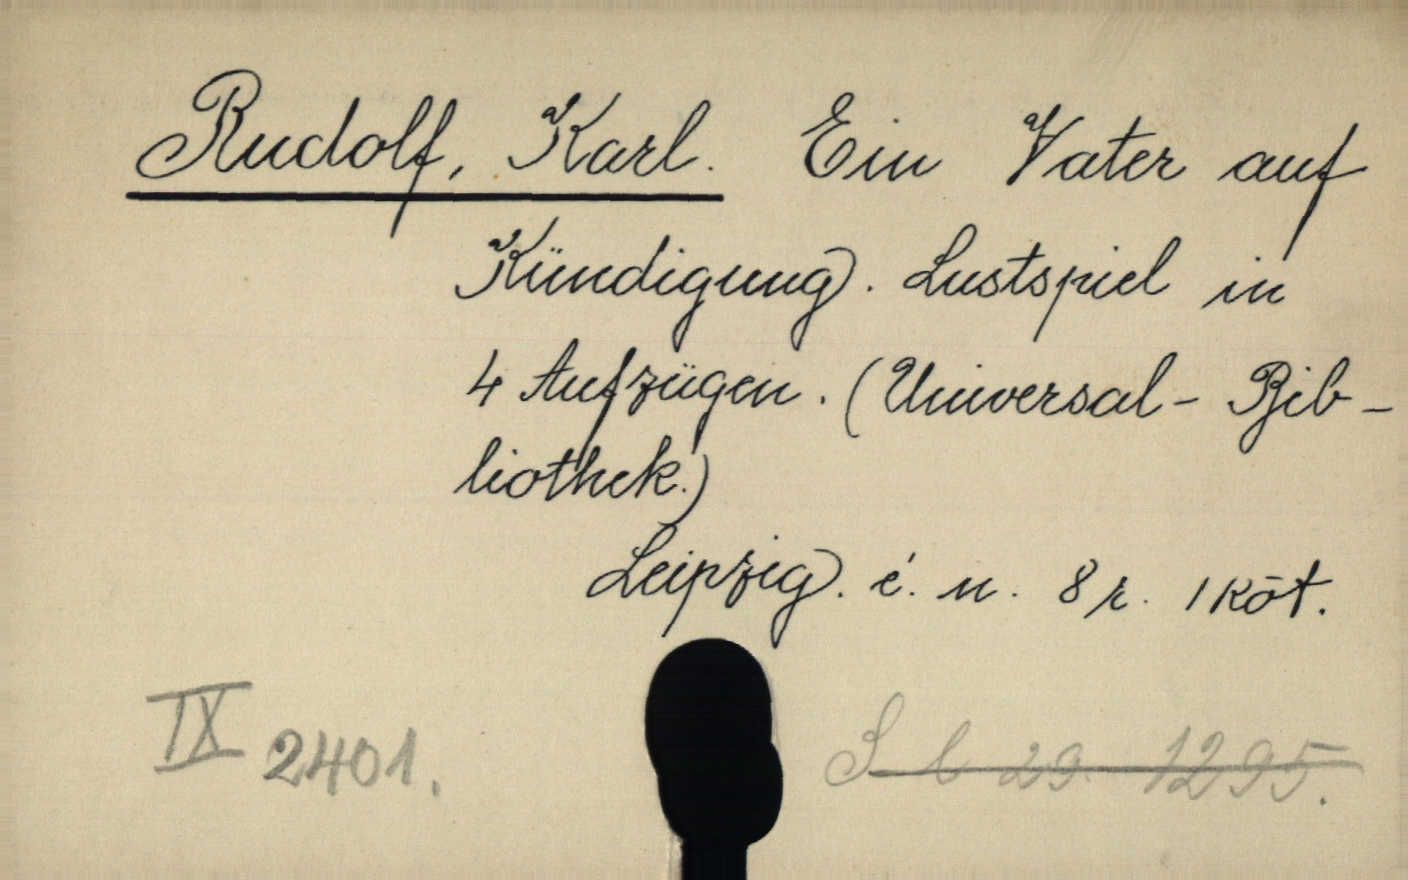 Rudolf, Karl. Ein Vater auf
Kündigung. Lustspiel in
4 Aufzügen. (Universal-Bib-
liothek.)
Leipzig. é. n. 8 r. 1 köt.
IX 2401.
S l 29. 1295.